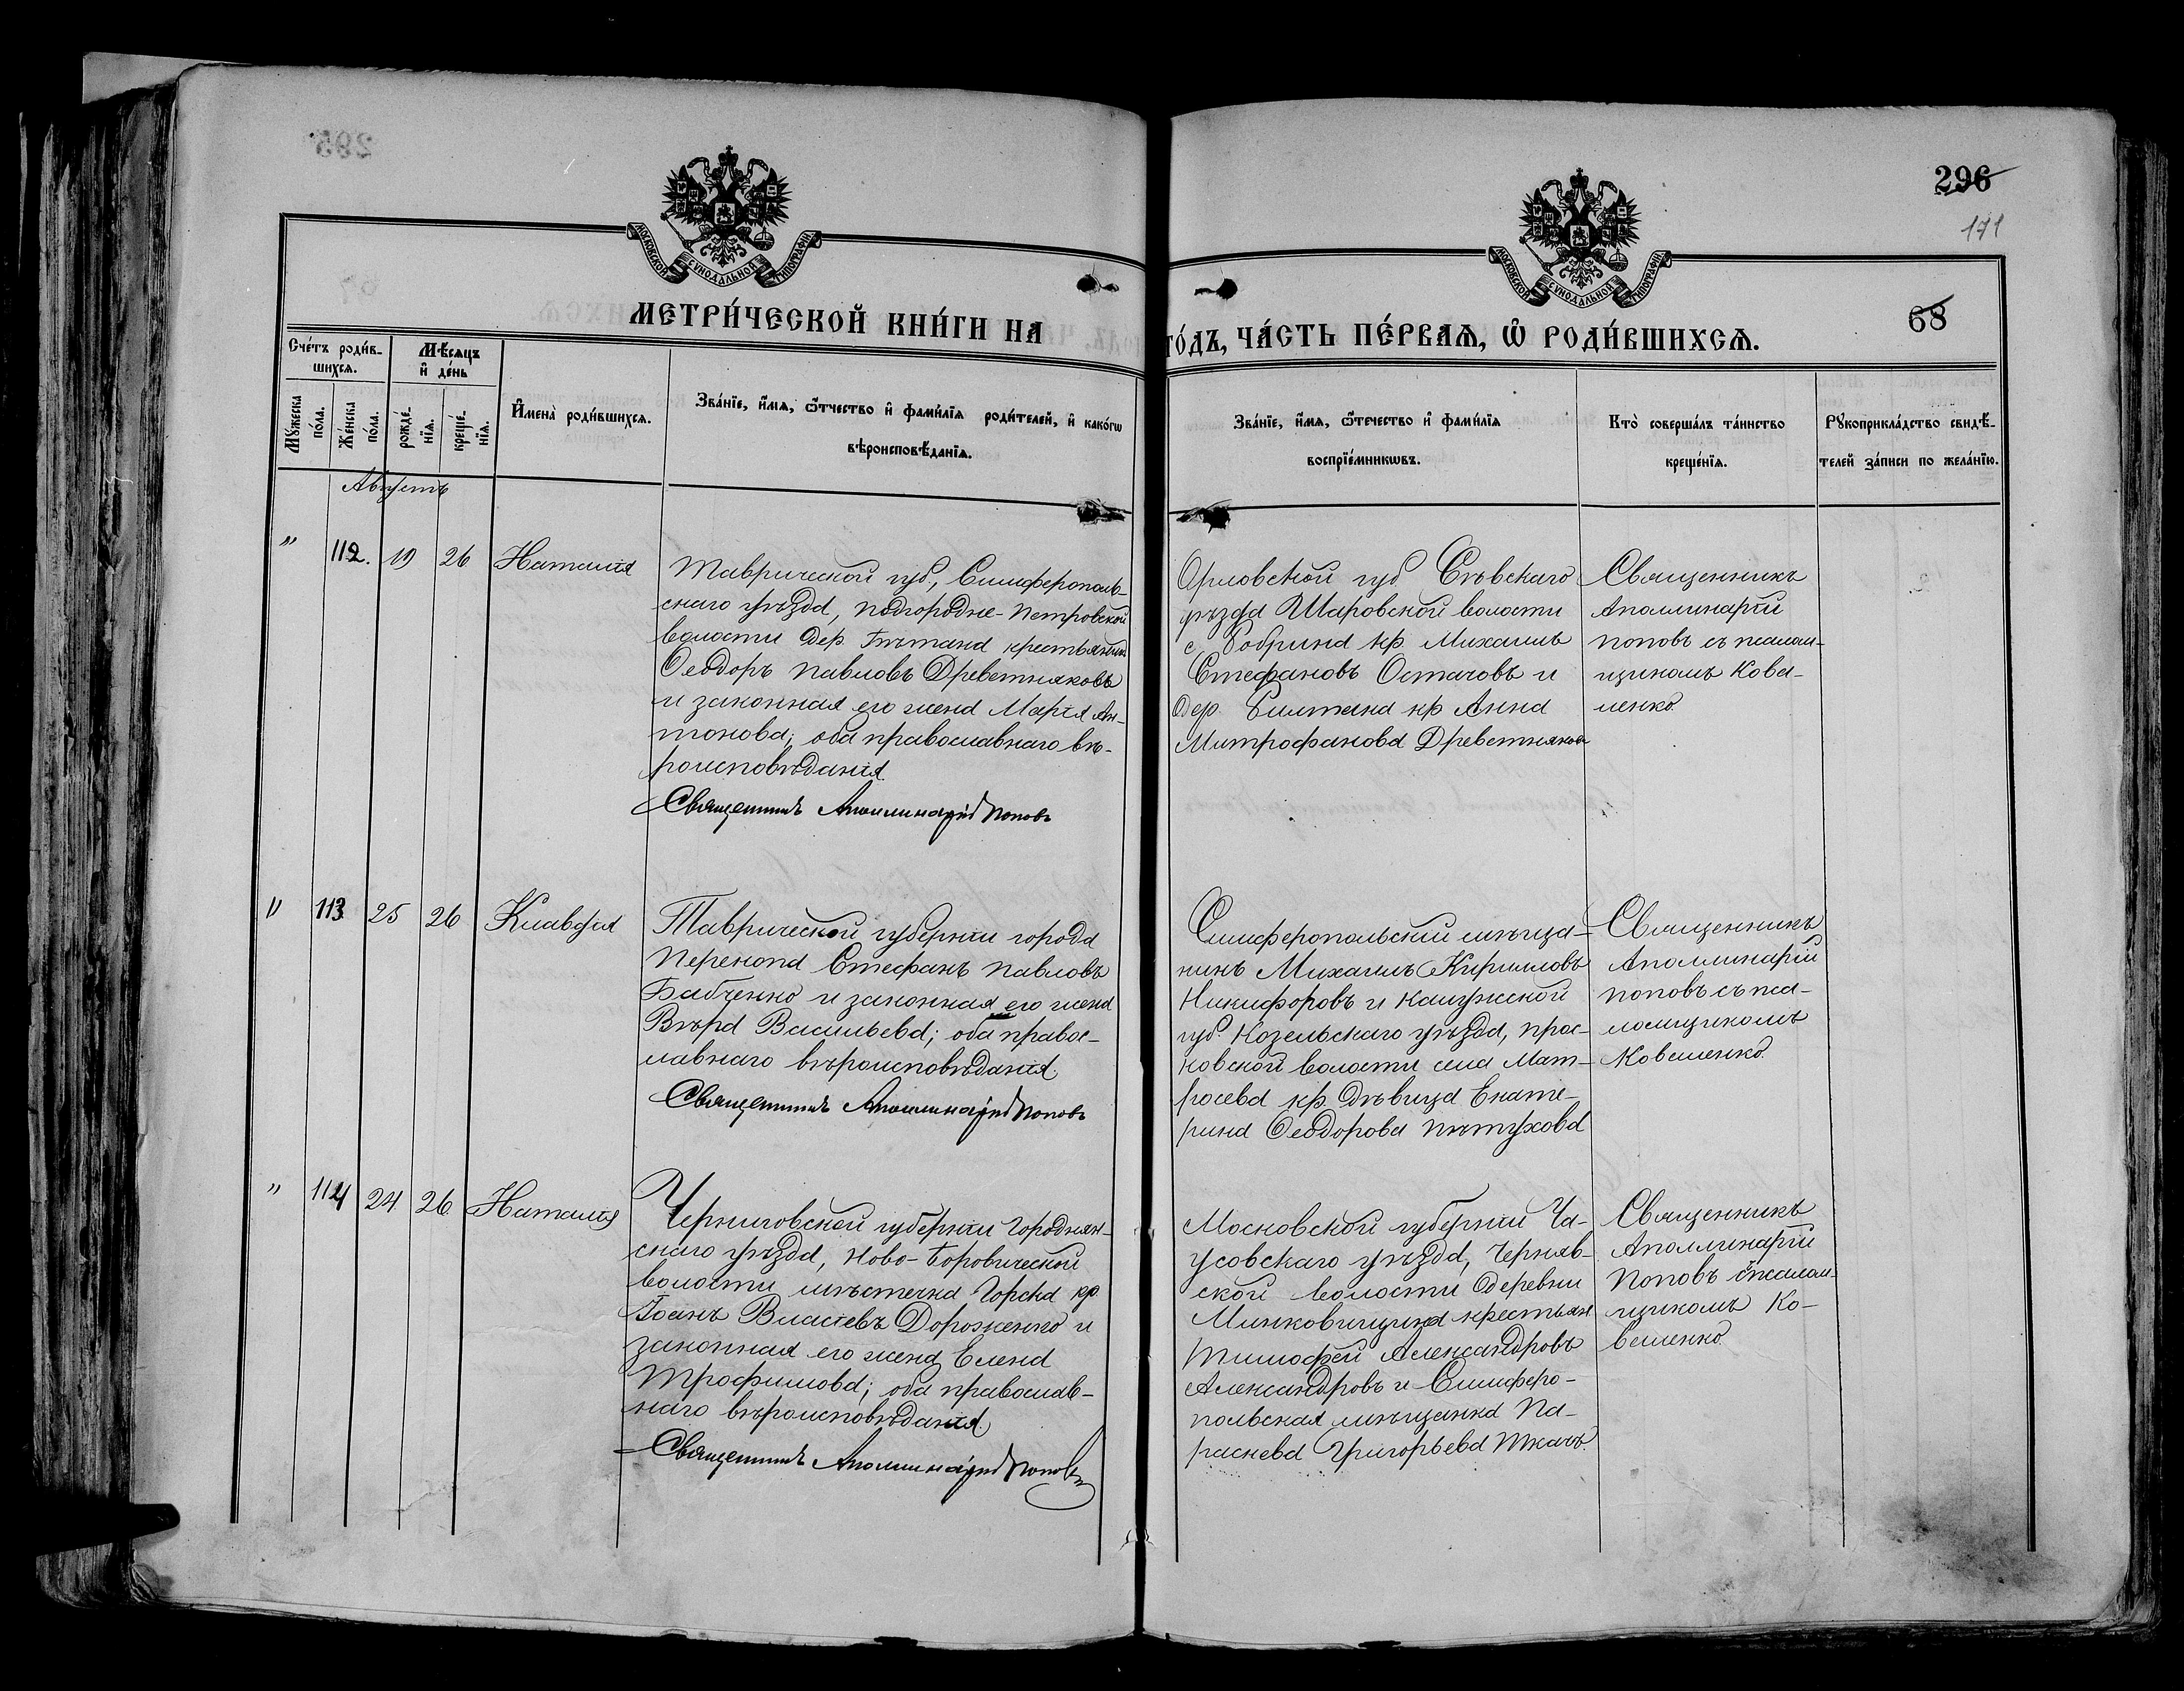 295
296
171
68
МОСКОВСКОЙ СѴНОДАЛЬНОЙ ТИПОГРАФІИ
МОСКОВСКОЙ СѴНОДАЛЬНОЙ ТИПОГРАФІИ
МЕТРИ́ЧЕСКОЙ КНИ́ГИ НА
ГО́ДЪ, ЧА́СТЬ ПЕ́РВАѦ, Ѡ҆ РОДИ́ВШИХСѦ.
Сче́тъ роди́в-
шихсѧ.
Мꙋжеска
по́ла.
Же́нска
по́ла.
Мѣ́сѧцъ
и҆ де́нь
рожде́-
нїѧ.
креще́-
нїѧ.
И҆мена̀ роди́вшихсѧ.
Зва́нїе, и҆́мѧ, ѻ҆́тчество и҆ фами́лїѧ роди́телей, и҆ како́гѡ
вѣроисповѣ́данїѧ.
Зва́нїе, и҆́мѧ, ѻ҆́течество и҆ фами́лїѧ
воспрїе́мникѡвъ.
Кто̀ соверша́лъ та́инство
креще́нїѧ.
Рꙋкоприкла́дство свидѣ́-
телей за́писи по жела́нїю.
Августъ
" 112. 19 26 Наталія
Таврической губ., Симферополь-
скаго уѣзда, Подгородне-Петровской
волости дер. Битака крестьянинъ
Ѳеодоръ Павловъ Древетняковъ
и законная его жена Марія Ан-
тонова; оба православнаго вѣ-
роисповѣданія.
Священникъ Аполлинарій Поповъ
Орловской губ Сѣвскаго
уѣзда Шаровской волости
с. Бобрика кр. Михаилъ
Стефановъ Остачовъ и
дер. Битака кр Анна
Митрофанова Древетнякова
Священникъ
Аполлинарій
Поповъ съ псалом-
щикомъ Кова-
ленко.
" 113 25 26 Клавдія
Таврической губерніи города
Перекопа Стефанъ Павловъ
Бабченко и законная его жена
Вѣра Васильева; оба правос-
лавнаго вѣроисповѣданія.
Священникъ Аполлинарій Поповъ
Симферопольскій мѣща-
нинъ Михаилъ Кирилловъ
Никифоровъ и Калужской
губ. Козельскаго уѣзда, Прос-
ковской волости села Мат-
росева кр. дѣвица Екате-
рина Ѳеодорова Пѣтухова
Священникъ
Аполлинарій
Поповъ съ пса-
ломщикомъ
Коваленко.
" 114 24 26 Наталія
Черниговской губерніи Городнян-
скаго уѣзда, Ново-Боровической
волости мѣстечка Горска кр
Іоанъ Власіевъ Дорошенко и
законная его жена Елена
Трофимова; оба православ-
наго вѣроисповѣданія.
Священникъ Аполлинарій Поповъ
Московской губерніи Ча-
усовскаго уѣзда, Черняв-
ской волости деревни
Минковищина крестьян
Тимофей Александровъ
Александровъ и Симферо-
польская мѣщанка Па-
раскева Григорьева Ткачъ.
Священникъ
Аполлинарій
Поповъ съ псалом-
щикомъ Ко-
валенко.